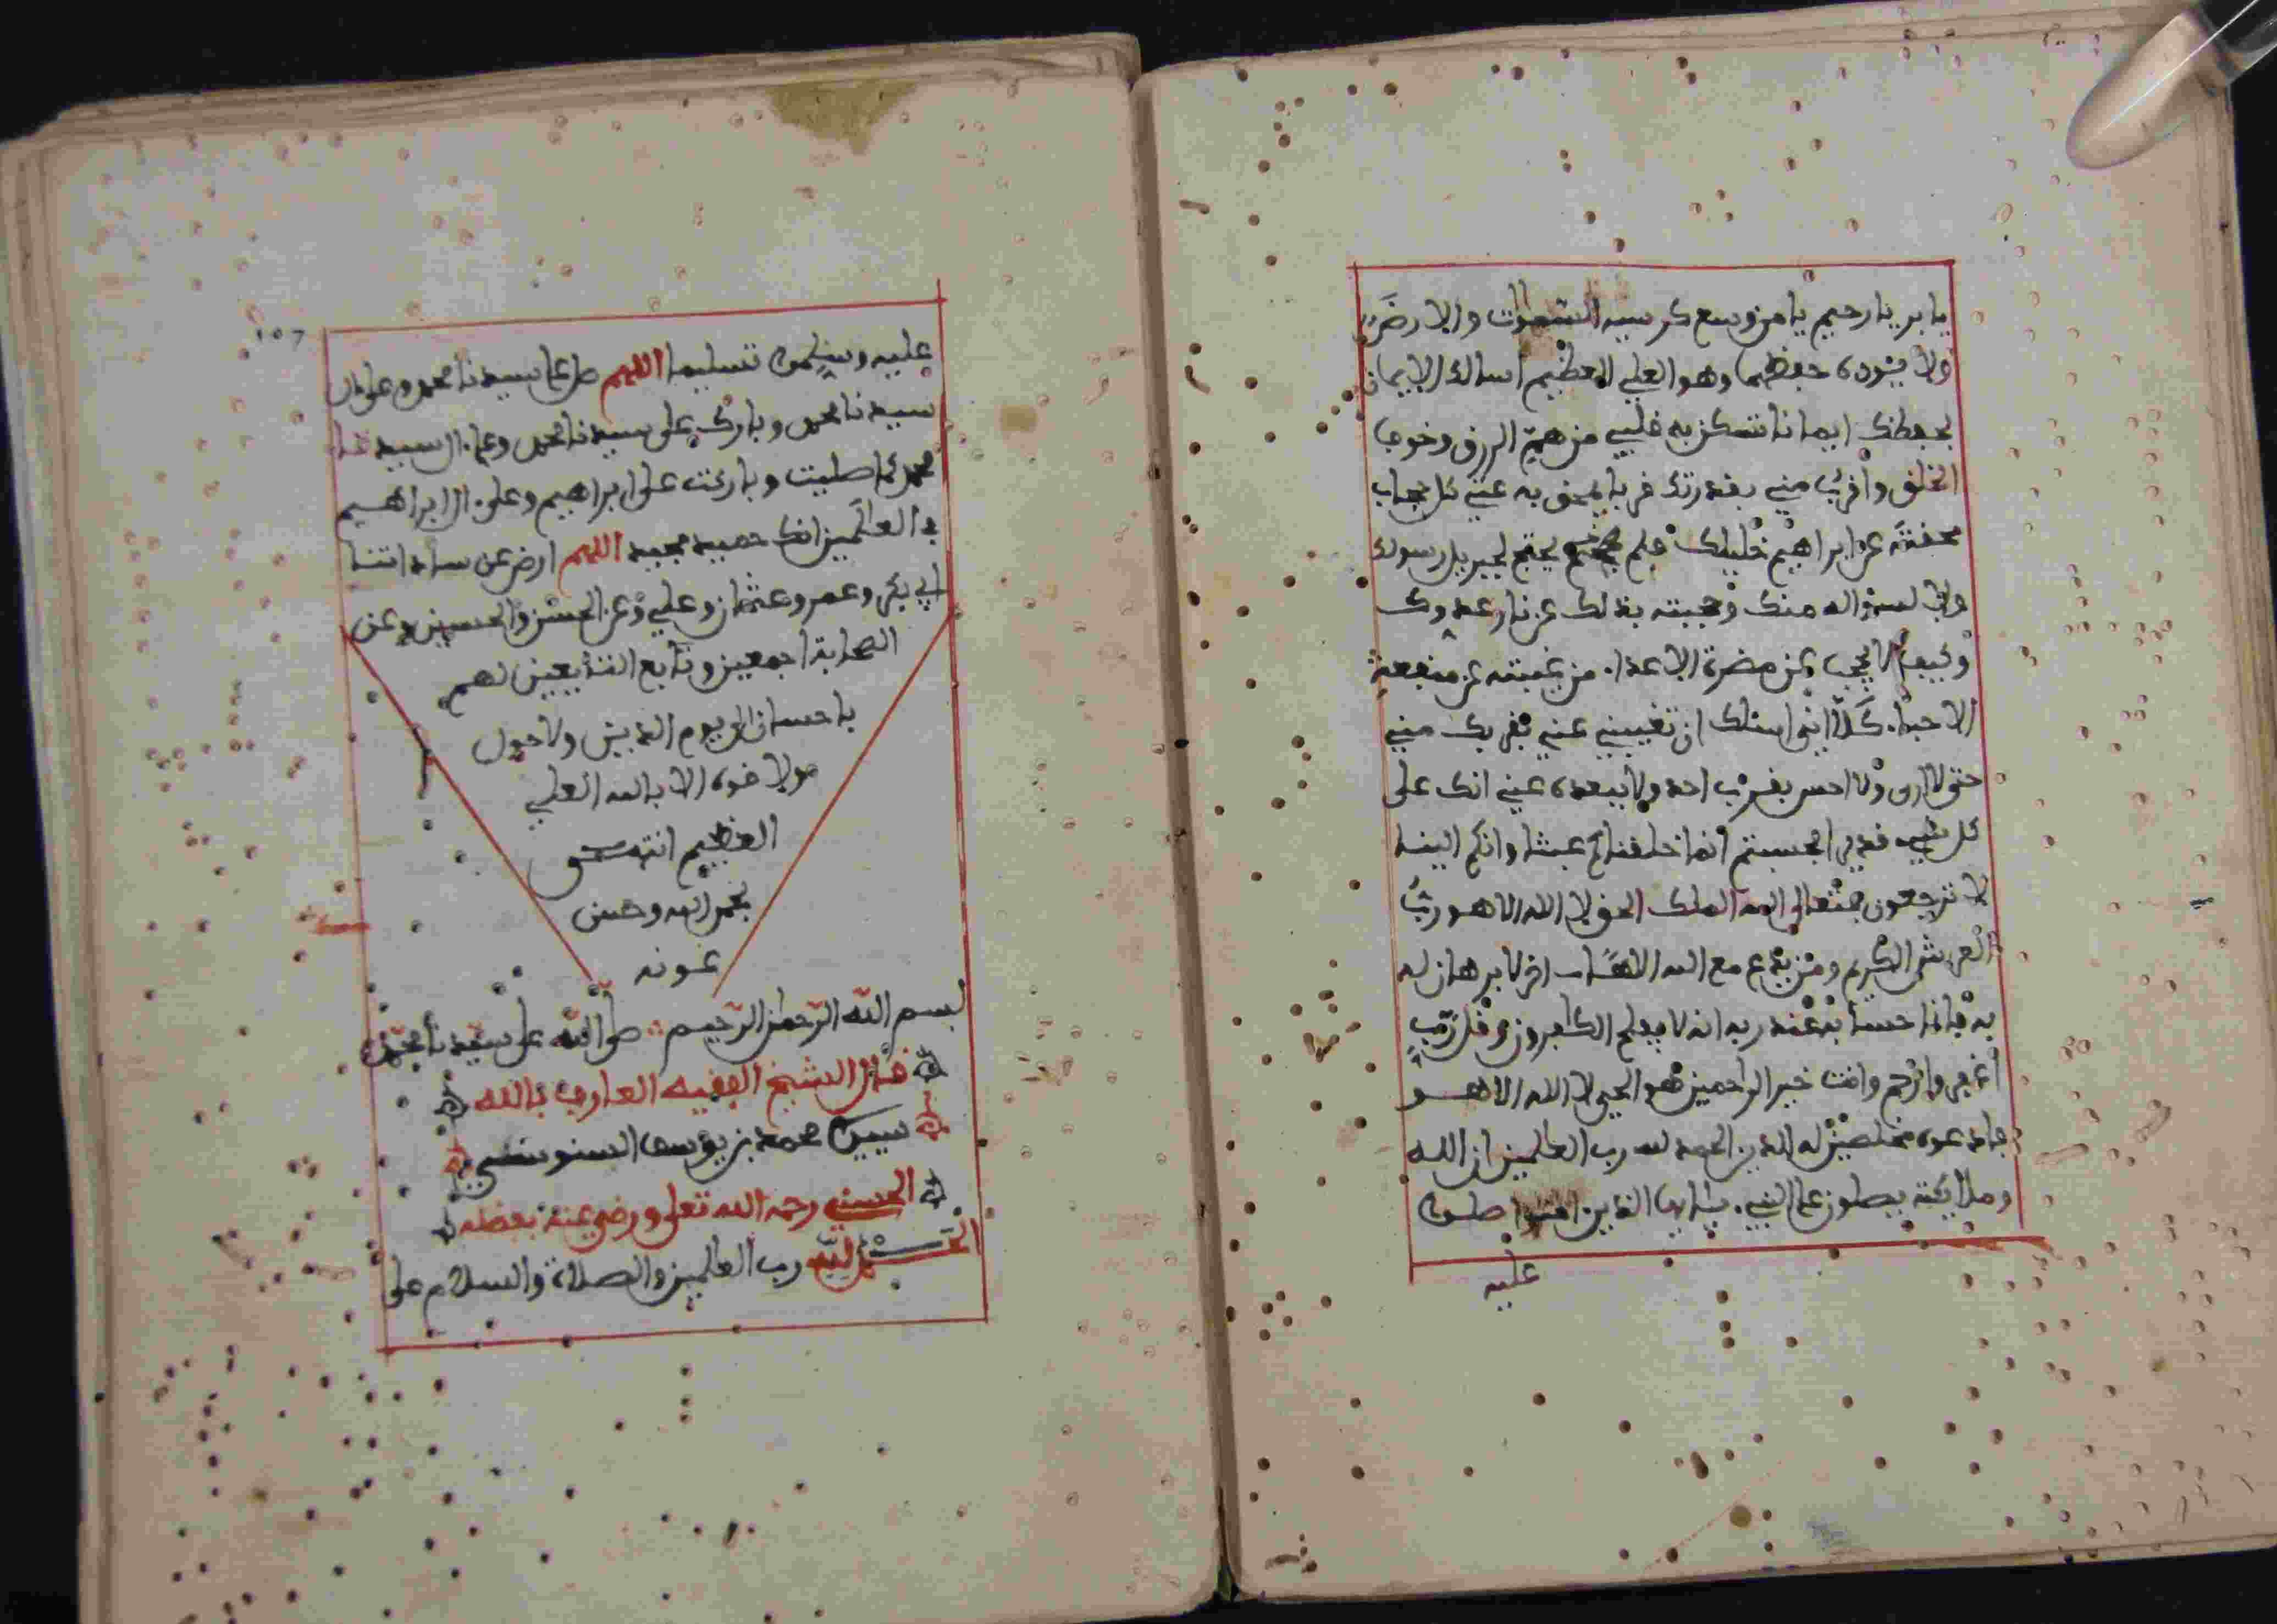 يا بر يا رحيم يا من وسع كرسيه السموات والارض
ولا يئوده حفظهما وهو العلي العظيم أسالك الايمان
بحفظك ايمانا تسكن به قلبي من هم الرزق وخوف
الخلق واقرب مني بقدرتك قربا تمحق به عني كل حجاب
محقته عن ابراهيم خليلك فلم يحتج لجبريل رسولك
ولا لسؤاله منك وحجبته بذلك عن نار عدوك
وكيف لا يحجب عن مضرة الاعداء من غيبته عن منفعة
الاحباء كلا اني اسئلك ان تغيبني عني بقربك مني
حتى لا ارى ولا احس بقرب احد ولا ببعده عني انك على
كل شيء قدير افحسبتم انما خلقناكم عبثا وانكم الينا
لا ترجعون فتعالى الله الملك الحق لا اله الا هو رب
العرش الكريم ومن يدع مع الله الاها اخر لا برهان له
به فانما حسابه عند ربه انه لا يفلح الكافرون وقل رب
اغفر وارحم وانت خير الراحمين هو الحي لا اله الا هو
فادعوه مخلصين له الدين الحمد لله رب العالمين ان الله
وملائكته يصلون على النبيء يا ايها الذين امنوا صلوا
عليه
١٥٦
عليه وسلموا تسليما اللهم صل على سيدنا محمد وعلى ال
سيدنا محمد وبارك على سيدنا محمد وعلى ال سيدنا
محمد كما صليت وباركت على ابراهيم وعلى ال ابراهيم
في العالمين انك حميد مجيد اللهم ارض عن ساداتنا
ابي بكر وعمر وعثمان وعلي وعن الحسن والحسين وعن
الصحابة اجمعين وتابع التابعين لهم
باحسان الى يوم الدين ولا حول
ولا قوة الا بالله العلي
العظيم انتهى
بحمد الله وحسن
عونه
بسم الله الرحمن الرحيم صلى الله على سيدنا محمد
قال الشيخ الفقيه العارف بالله
سيدي محمد بن يوسف السنوسي
الحسني رحمه الله تعلى ورضي عنه بفضله
الحمد لله رب العالمين والصلاة والسلام على